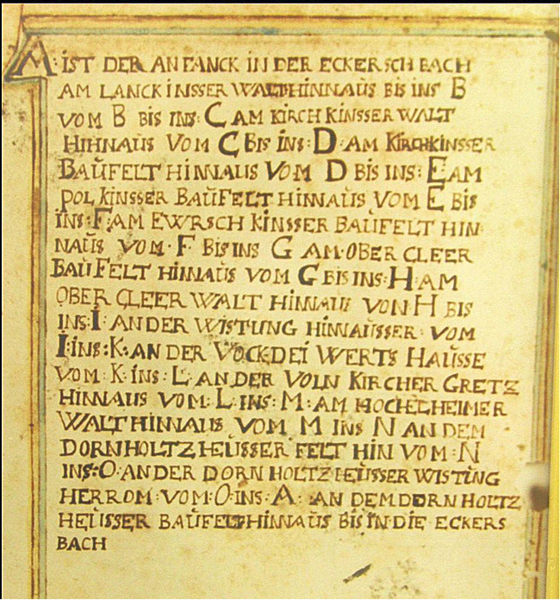 A · IST DER ANFANCK IN DER ECKERSCH BACH
AM LANCKINSSER WALTHINNAŬS BIS INS B
VOM B BIS INS: C AM KIRCHKINSSER WALT
HIHNAUS VOM C BIS INS: D: AM KIRCHKINSSER
BAŬFELT HINNAUS VOM D BIS INS: E AM
POLKINSSER BAŬFELT HINNAŬS VOM E BIS
INS: F: AM EWRSCHKINSSER BAŬFELT HIN
NAŬS VOM · F BIS INS G AM · OBER CLEER
BAŬFELT HINNAŬS VOM G BIS INS: H: AM
OBER CLEER WALT HINNAUS VON H BIS
INS: I: AN DER WISTUNG HINNAŬSSER · VOM
I: INS: K: AN DER VOCKDEI WERTS HAŬSSE
VOM · K · INS · L · AN DER VOLN KIRCHER GRETZ
HINNAUS VOM · L · INS: M: AM HOCHELHEIMER
WALT HINNAUS VOM M INS N AN DEM
DORNHOLTZHEŬSSER FELT HIN VOM · N
INS: O · AN DER DORNHOLTZHEŬSSER WISTŬNG
HERROM · VOM · O · INS · A · AN DEM DORNHOLTZ
HEŬSSER BAŬFELT HINNAŬS BIS IN DIE ECKERS
BACH